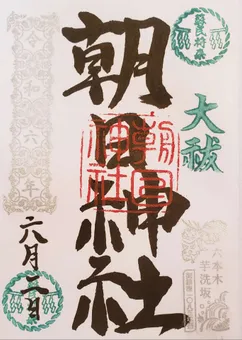 蘇民将来
大祓
朝日神社
朝日神社
令和六年
六月 日
六本木
芋洗坂